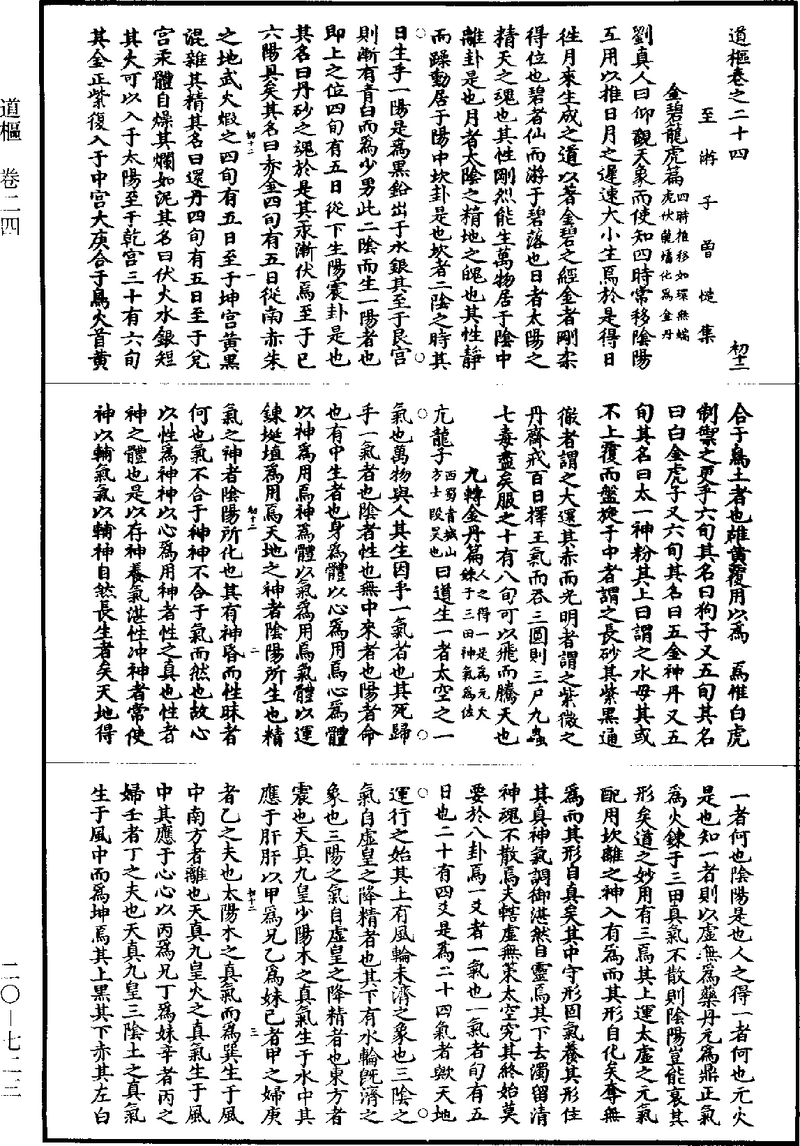 道樞 卷二四
二〇—七二三
道樞卷之二十四 初十二
至游子曾慥集
金碧龍虎篇 四時推移如環無端 虎伏龍蟠化為金丹
劉真人曰仰觀天象而使知四時常移陰陽
互用以推日月之遲速大小生焉於是得日
往月來生成之道以著金碧之經金者剛柔
得位也碧者仙而游于碧落也日者太陽之
精天之魂也其性剛烈能生萬物居于陰中
離卦是也月者太陰之精地之魄也其性靜
而躁動居于陽中坎卦是也坎者二陰之時其
日生乎一陽是為黑鉛出于水銀其至于艮宮
則漸有青白而為少男此二陰而生一陽者也
即上之位四旬有五日從下生陽震卦是也
其名曰丹砂之魂於是其汞漸伏焉至于巳
六陽具矣其名曰赤金四旬有五日從南赤朱
之地武火煅之四旬有五日至于坤宮黃黑
混雜其精其名曰還丹四旬有五日至于兌
宮汞體自燥其爛如泥其名曰伏火水銀短
其大可以入于太陽至于乾宮三十有六旬
其金正紫復入于中宮大庚合于鳥火首黃
合于鳥土者也雄黃覆用以為 焉惟白虎
制禦之更乎六旬其名曰狗子又五旬其名
曰白金虎子又六旬其名曰五金神丹又五
旬其名曰太一神粉其上曰謂之水母其或
不上覆而盤旋于中者謂之長砂其紫黑通
徹者謂之大還其赤而光明者謂之紫微之
丹齋戒百日擇王氣而吞三圓則三尸九蟲
七毒盡矣服之十有八旬可以飛而騰天也
九轉金丹篇 人之得一是為元火 鍊于三田神氣為佐
亢龍子 西蜀青城山 方士段昊也 曰道生一者太空之一
氣也萬物與人其生因乎一氣者也其死歸
乎一氣者也陰者性也無中來者也陽者命
也有中生者也身為體以心為用焉心為體
以神為用焉神為體以氣為用焉氣體以運
鍊埏埴為用焉天地之神者陰陽所生也精
氣之神者陰陽所化也其有神昏而性昧者
何也氣不合于神神不合于氣而然也故心
以性為神神以心為用神者性之真也性者
神之體也是以存神養氣湛性沖神者常使
神以輔氣氣以輔神自然長生者矣天地得
一者何也陰陽是也人之得一者何也元火
是也知一者則以虛無為藥丹元為鼎正氣
為火鍊于三田真氣不散則陰陽豈能衰其
形矣道之妙用有三焉其上運太虛之元氣
配用坎離之神入有為而其形自化矣奪無
為而其形自真矣其中守形固氣養其形住
其真神氣調御湛然自靈焉其下去濁留清
神魂不散焉夫轄虛無策太空究其終始莫
要於八卦焉一爻者一氣也一氣者旬有五
日也二十有四爻是為二十四氣者歟天地
運行之始其上有風輪未濟之象也三陰之
氣自虛皇之降精者也其下有水輪既濟之
象也三陽之氣自虛皇之降精者也東方者
震也天真九皇少陽木之真氣生于水中其
應于肝肝以甲為兄乙為妹己者甲之婦庚
者乙之夫也太陽木之真氣而為巽生于風
中南方者離也天真九皇火之真氣生于風
中其應于心心以丙為兄丁為妹辛者丙之
婦壬者丁之夫也天真九皇三陰土之真氣
生于風中而為坤焉其上黑其下赤其左白